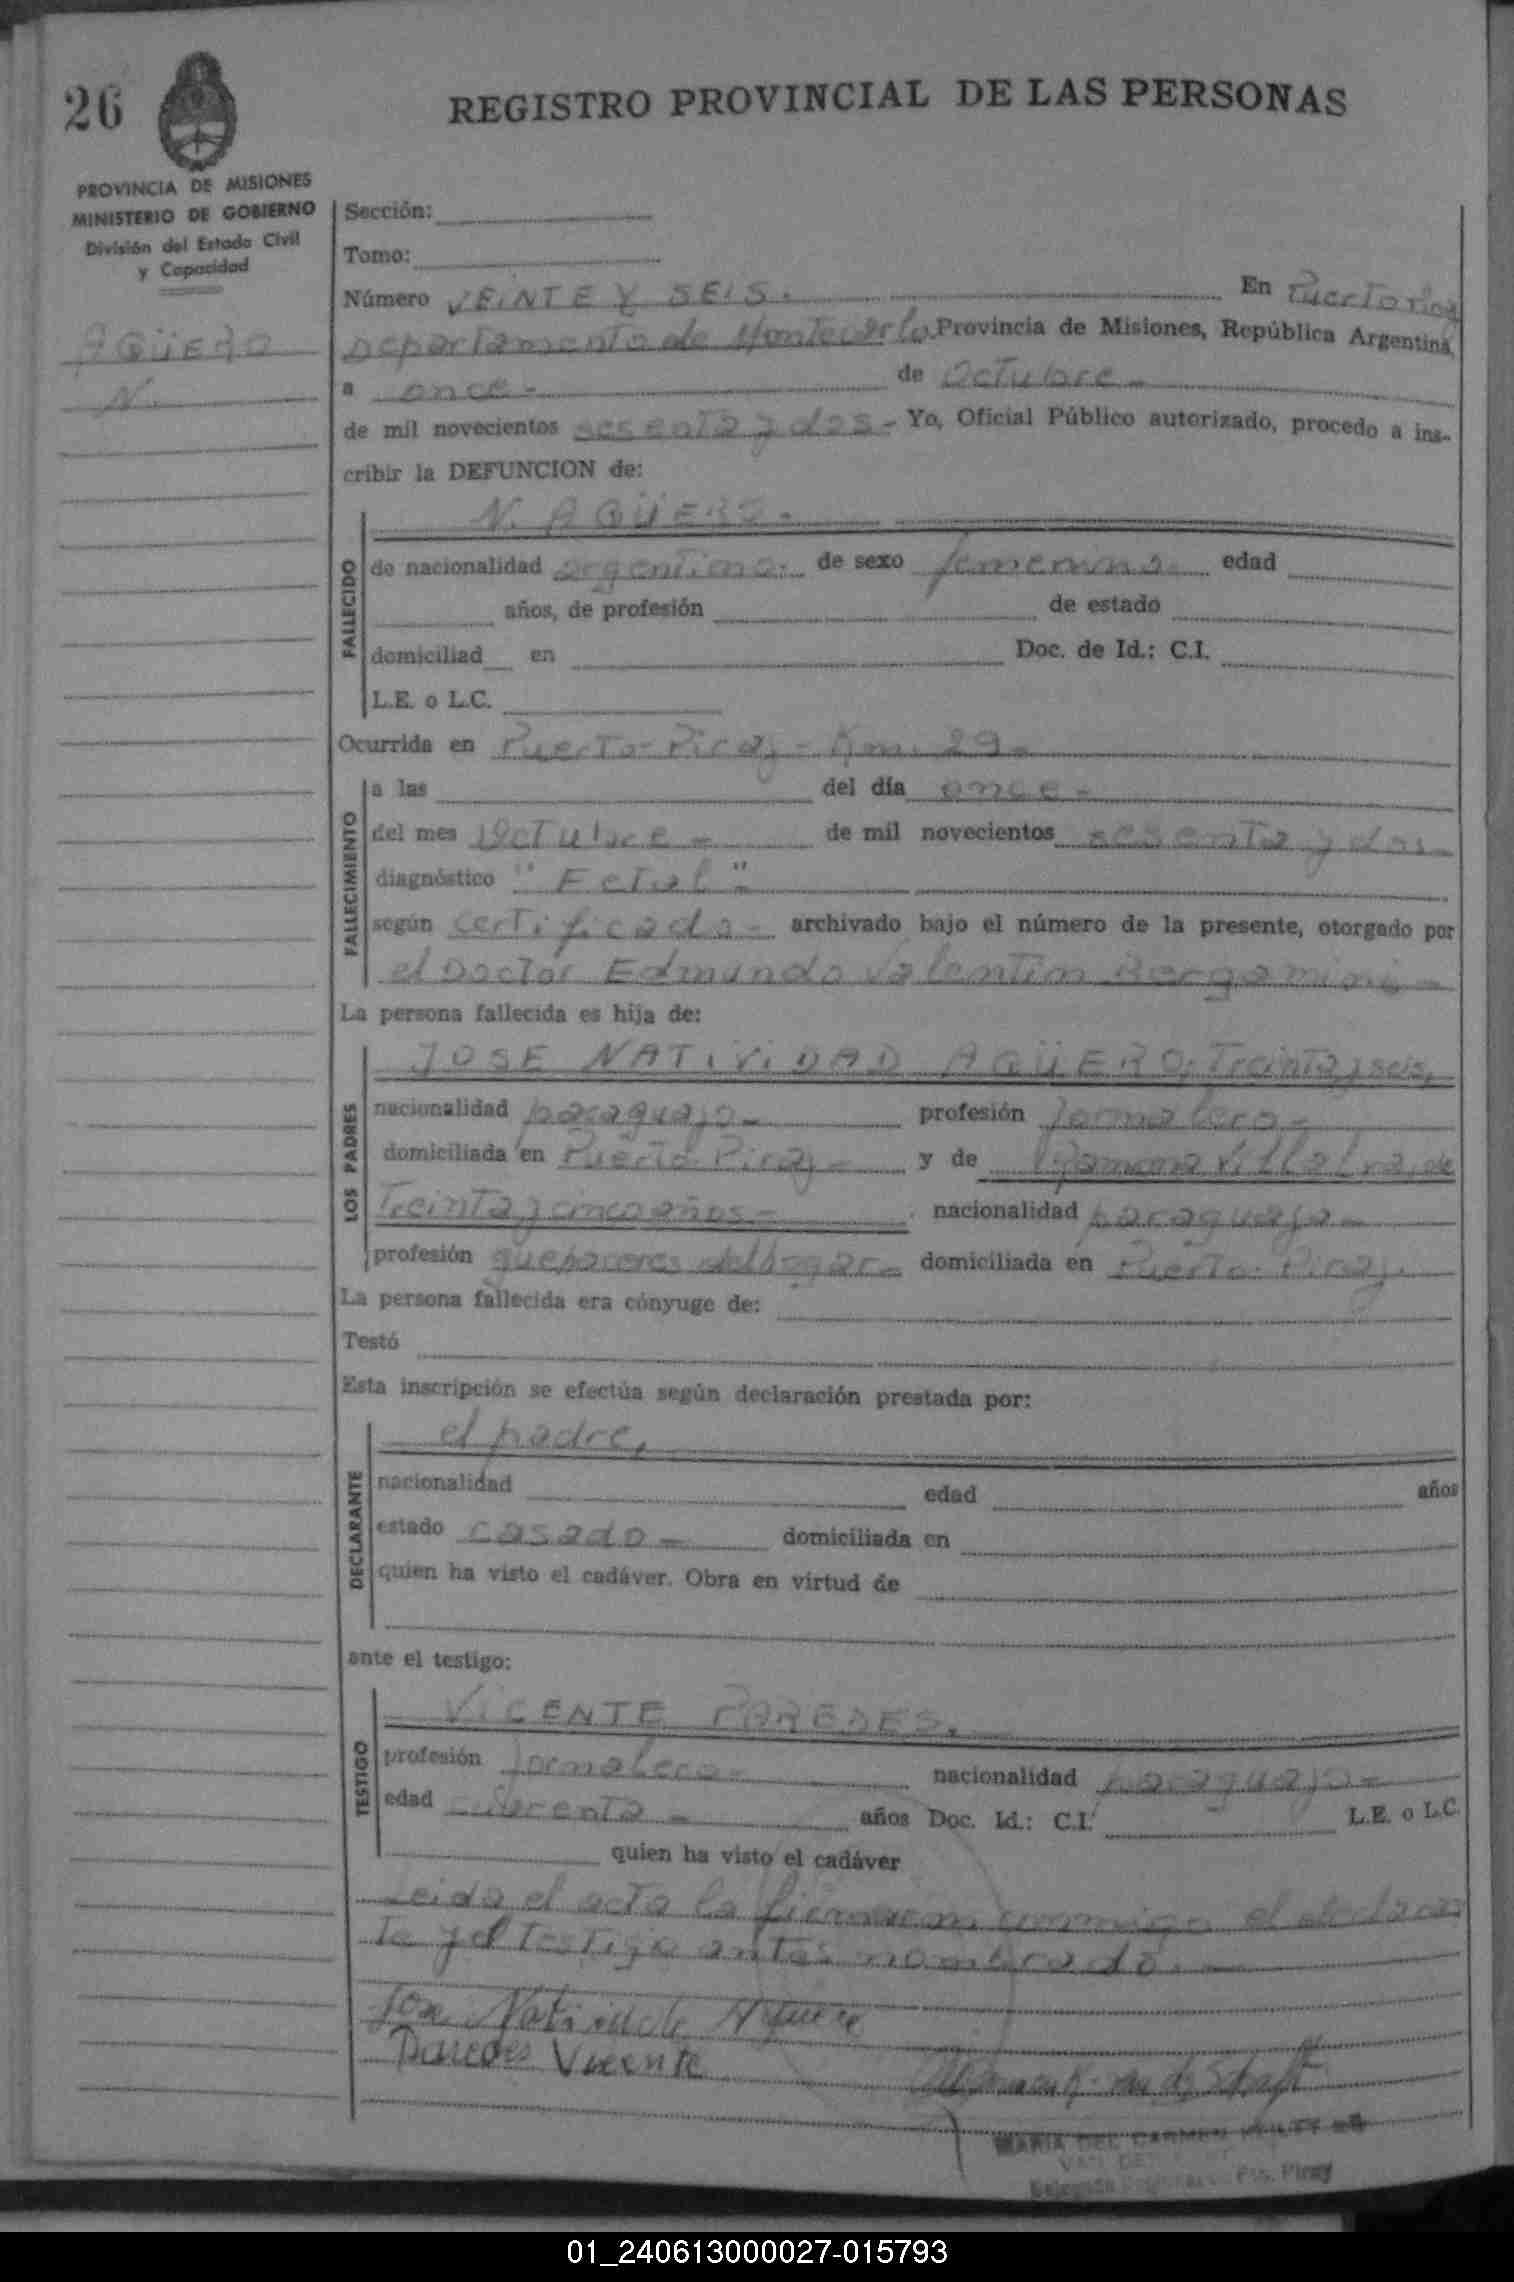 26
REGISTRO PROVINCIAL DE LAS PERSONAS
PROVINCIA DE MISIONES
MINISTERIO DE GOBIERNO
División del Estado Civil
y Capacidad
AGÜERO
N.
Sección:
Tomo:
Número VEINTE Y SEIS. En Puerto Piray
Departamento de Montecarlo. Provincia de Misiones, República Argentina,
a once- de Octubre-
de mil novecientos sesenta y dos- Yo, Oficial Público autorizado, procedo a ins-
cribir la DEFUNCION de:
FALLECIDO
N. AGÜERO.
de nacionalidad argentina. de sexo femenino. edad
años, de profesión de estado
domiciliad en Doc. de Id.: C.I.
L.E. o L.C.
Ocurrida en Puerto-Piray-Km. 29-
FALLECIMIENTO
a las del día once-
del mes Octubre- de mil novecientos sesenta y dos-
diagnóstico "Fetal"-
según certificado- archivado bajo el número de la presente, otorgado por
el Doctor Edmundo Valentín Bergamini-
La persona fallecida es hija de:
LOS PADRES
JOSE NATIVIDAD AGÜERO, Treinta y seis,
nacionalidad paraguayo- profesión Jornalero-
domiciliada en Puerto Piray- y de Ramona Villalva, de
Treinta y cinco años- nacionalidad paraguaya-
profesión quehaceres del hogar- domiciliada en Puerto Piray.
La persona fallecida era cónyuge de:
Testó
Esta inscripción se efectúa según declaración prestada por:
DECLARANTE
el padre,
nacionalidad edad años
estado casado- domiciliada en
quien ha visto el cadáver. Obra en virtud de
ante el testigo:
TESTIGO
VICENTE PAREDES.
profesión Jornalero- nacionalidad paraguayo-
edad cuarenta- años Doc. Id.: C.I. L.E. o L.C.
quien ha visto el cadáver
Leida el acta la firman conmigo el declaran
te y el testigo antes nombrado.-
Jose Natividade Aguero
Paredes Vicente
MARIA DEL CARMEN DE
VAN DER
Delegada Pto. Piray
01_240613000027-015793